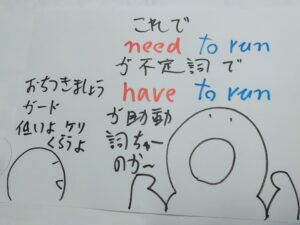 これで
need to run
が不定詞で
have to run
が助動
詞ちゅー
のか〜
おちつきましょう
ガード
低いよ ケリ
くらうよ